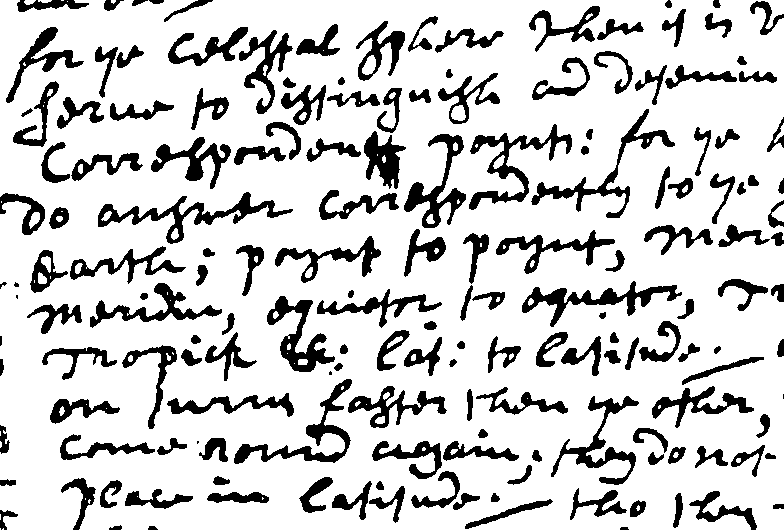 for ye Celestal sphere then it is
serue to distinguish and determin
Correspondent poynts: for ye
do answer correspondently to ye
Earth; poynt to poynt, meri
meridin, equietor to equator, Tr
Tropick &c: lat: to latitude.
on turns faster then ye other,
come round again, they do not
place in latitude. tho then